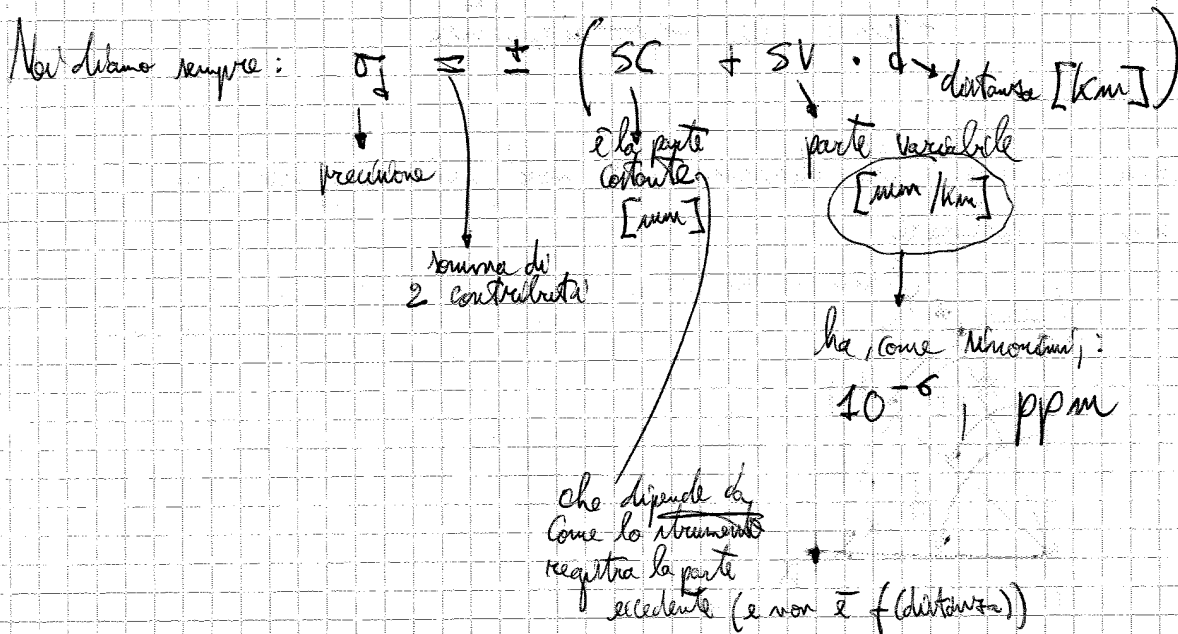 Noi diamo sempre: σd = ± (SC + SV · d)
distanza [km]
precisione
è la parte
costante
[mm]
parte variabile
[mm/km]
somma di
2 contributi
ha, come sinonimi, :
10⁻⁶, ppm
che dipende da
come lo strumento
registra la parte
eccedente (e non è f(distanza))